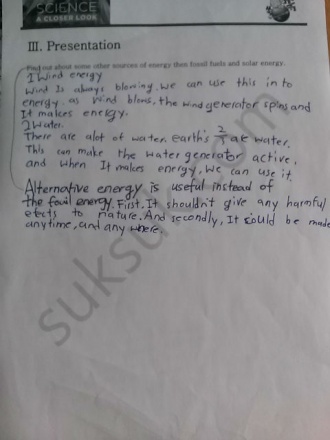 SCIENCE
A CLOSER LOOK
III. Presentation
Find out about some other sources of energy then fossil fuels and solar energy.
1 Wind energy
Wind Is always blowing. we can use this in to
energy. as wind blows, the wind generator spins and
It makes energy.
2 Water.
There are alot of water. earth's 2/3 are water.
This can make the water generator active,
and when It makes energy, we can use it.
Alternative energy is useful instead of
the fouil energy. First, It shouldn't give any harmful
efects to nature. And secondly, It sould be made
anytime, and any where.